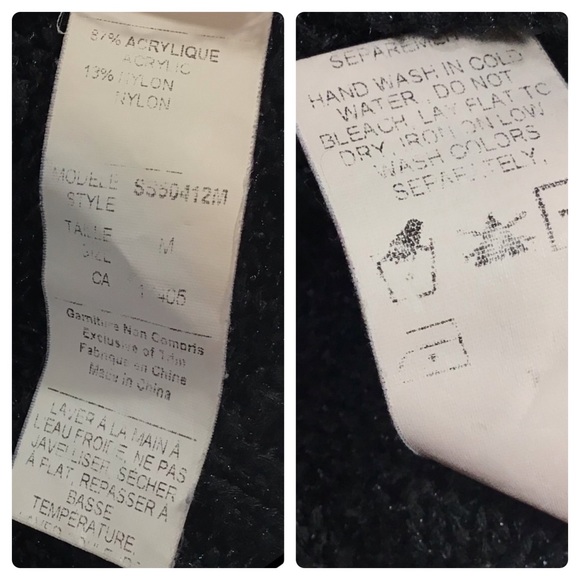 87% ACRYLIQUE
ACRYLIC
13% NYLON
NYLON
MODELE
STYLE
TAILLE M
SIZE
CA
Garniture Non Compris
Exclusive of Trim
Fabrique en Chine
Made in China
LAVER A LA MAIN A
L'EAU FROIDE, NE PAS
JAVELLISER, SECHER
A PLAT, REPASSER A
BASSE
TEMPERATURE,
SEPAREMENT
HAND WASH IN COLD
WATER, DO NOT
BLEACH, LAY FLAT TO
DRY, IRON ON LOW
WASH COLORS
SEPARETELY.